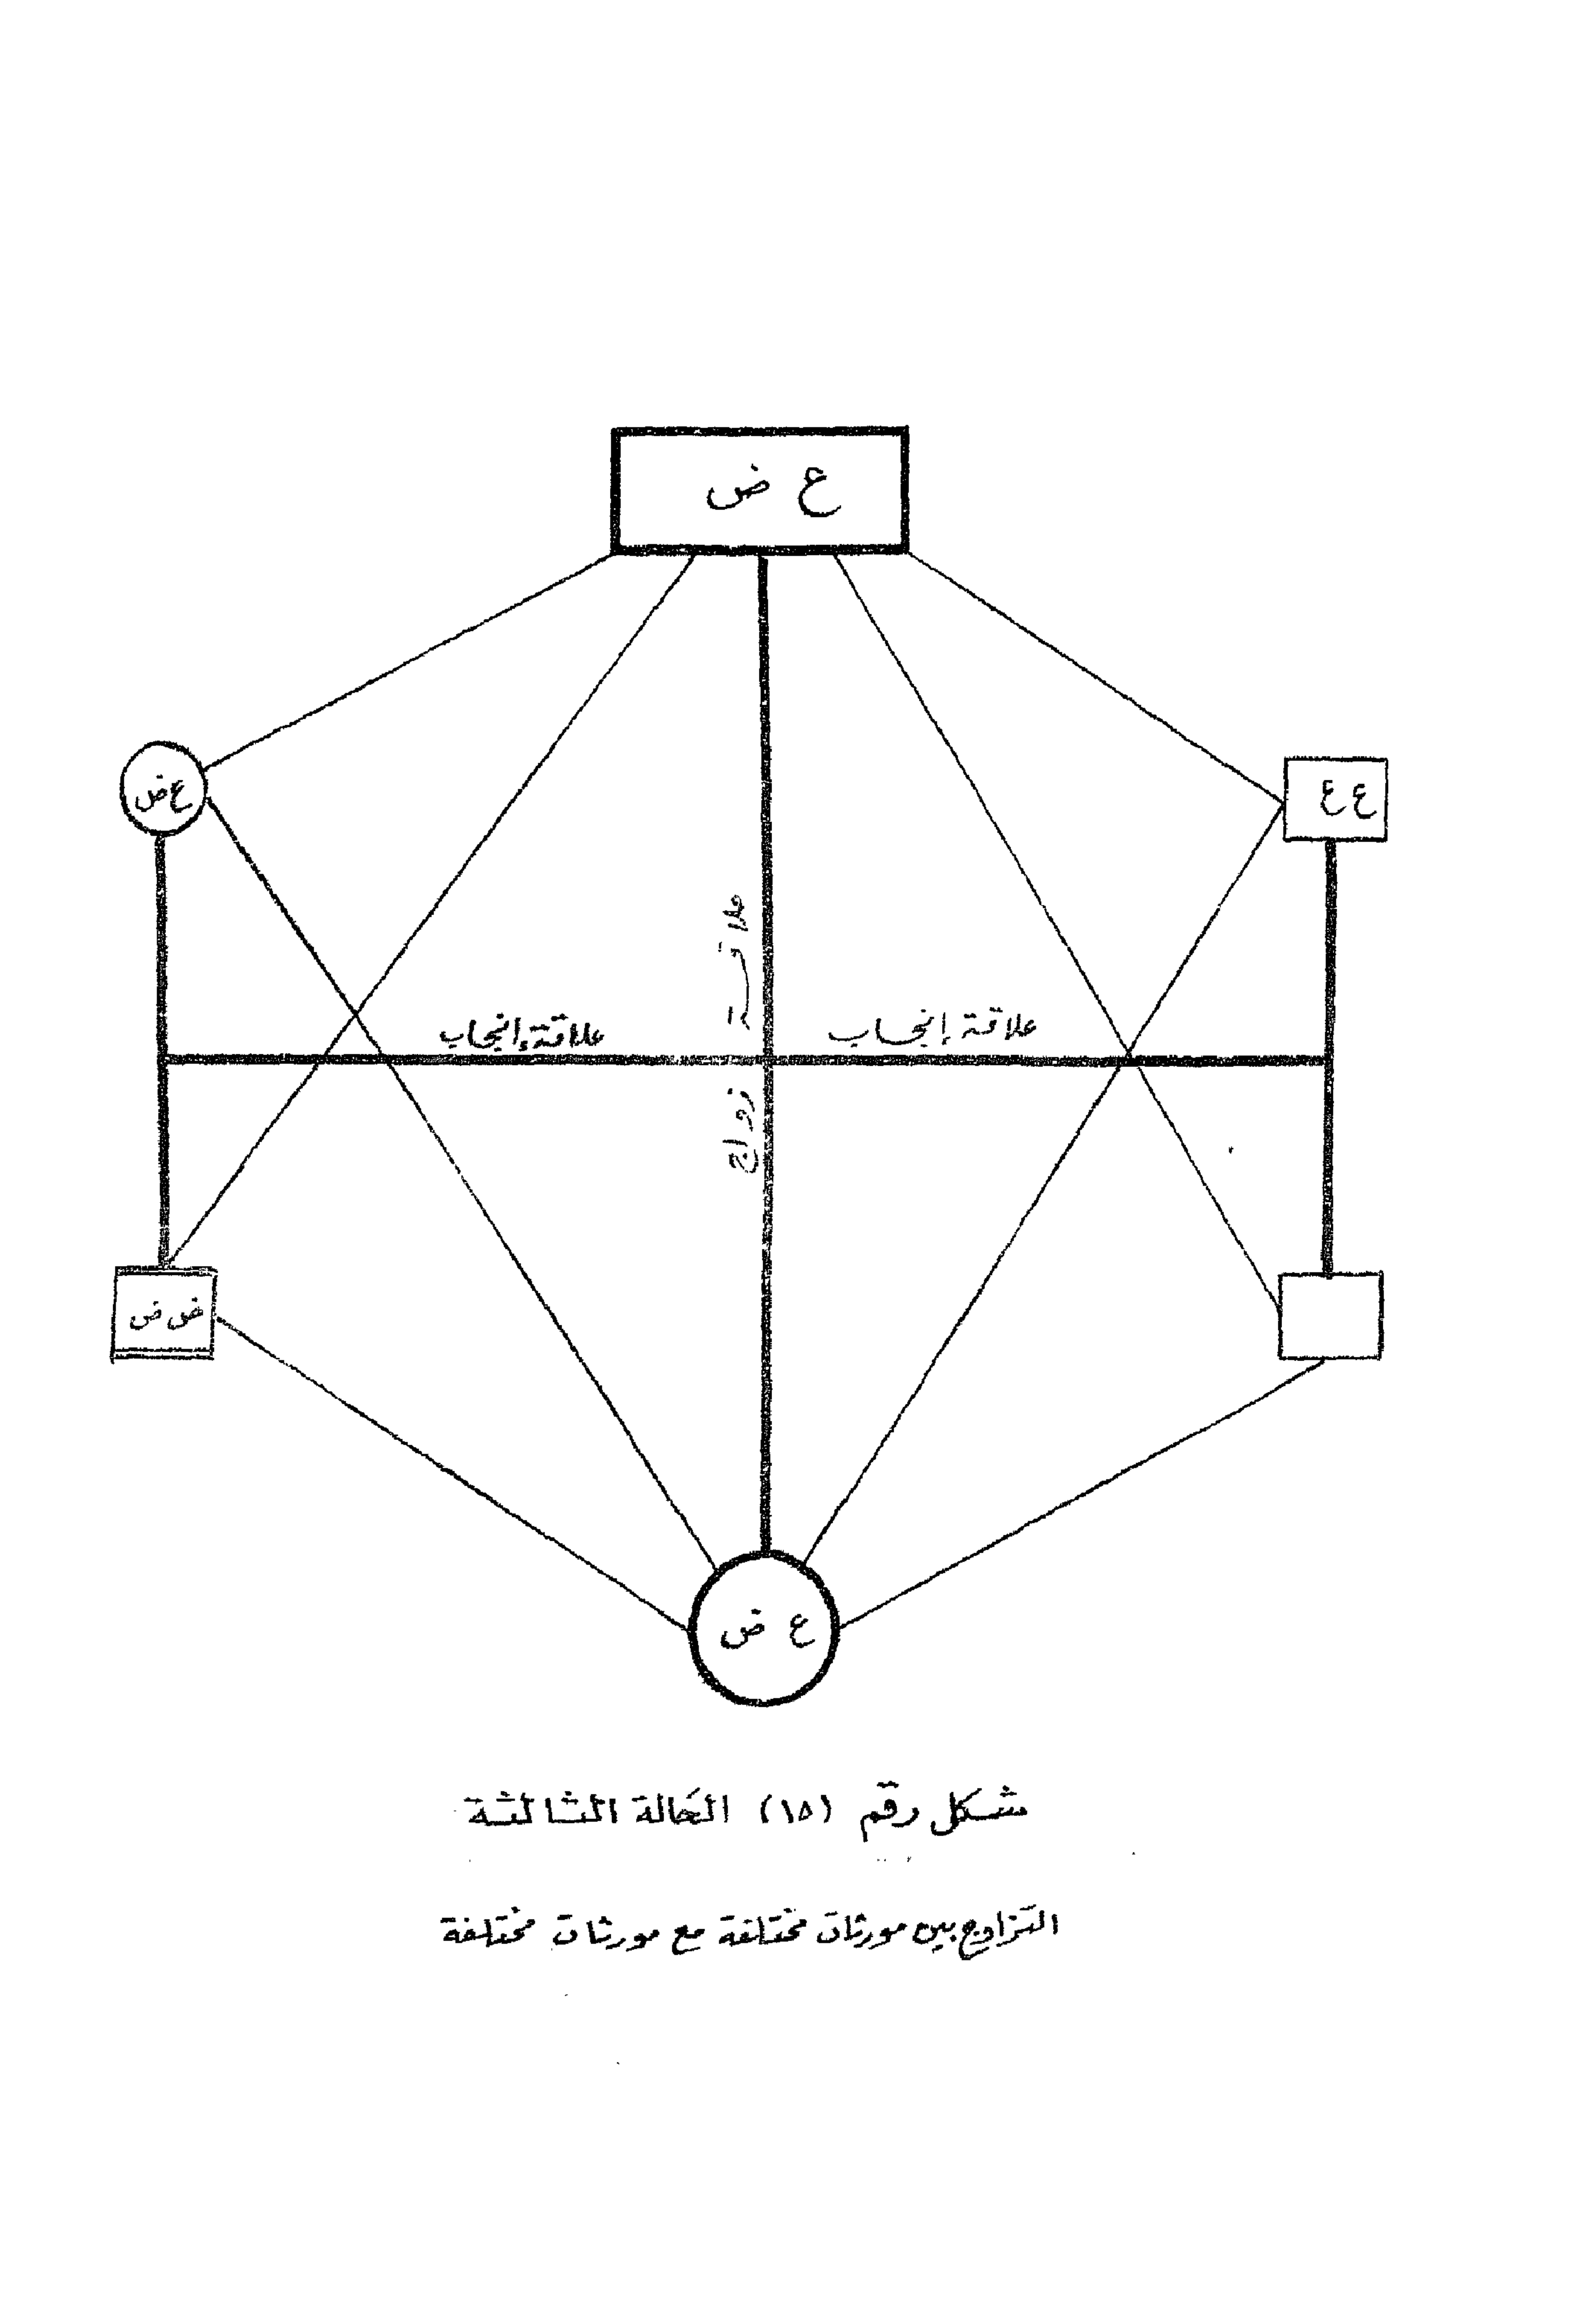 ع ض
ع ع
ع ض
علاقة زواج
علاقة إنجاب
علاقة إنجاب
ض ض
ع ض
شكل رقم (١٥) الحالة الثالثة
التزاوج بين مورثات مختلفة مع مورثات مختلفة